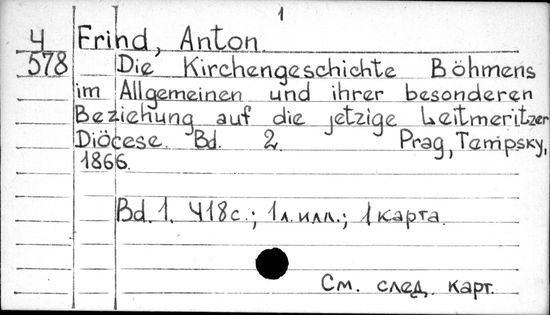 1
Ч Frind, Anton
578 Die Kirchengeschichte Böhmens
im Allgemeinen und ihrer besonderen
Beziehung auf die jetzige Leitmeritzer
Diöcese. Bd. 2. Prag, Tempsky,
1866.
Bd. 1. 418 с.; 1 л. илл.; 1 карта.
См. след. карт.